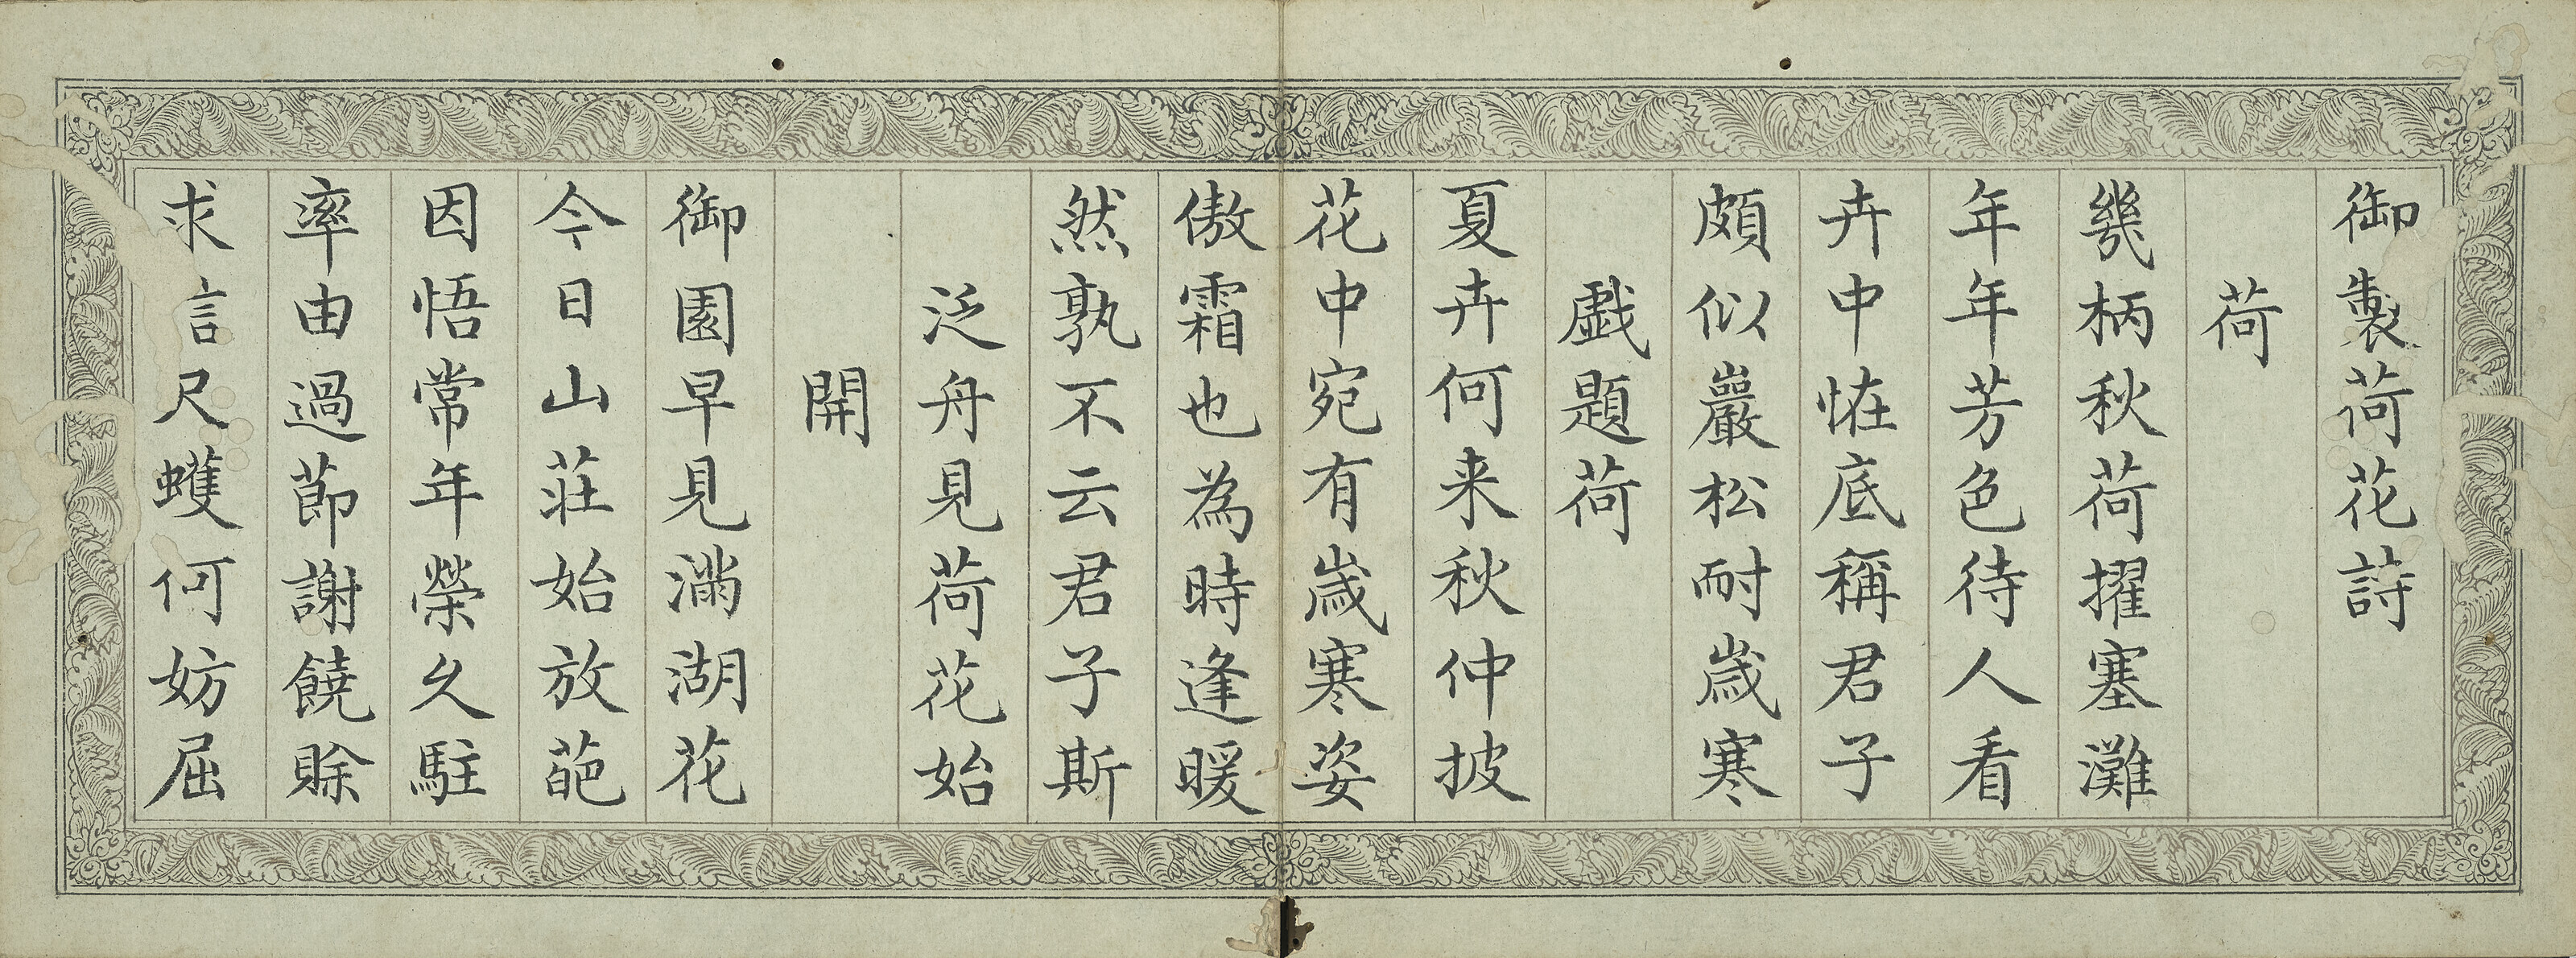 御製荷花詩
荷
幾柄秋荷擢塞灘
年年芳色待人看
卉中恠底稱君子
頗似巖松耐歲寒
戱題荷
夏卉何来秋仲披
花中宛有歲寒姿
傲霜也為時逢暖
然孰不云君子斯
泛舟見荷花始
開
御園早見滿湖花
今日山莊始放葩
因悟常年榮久駐
率由過節謝饒賒
求言尺蠖何妨屈